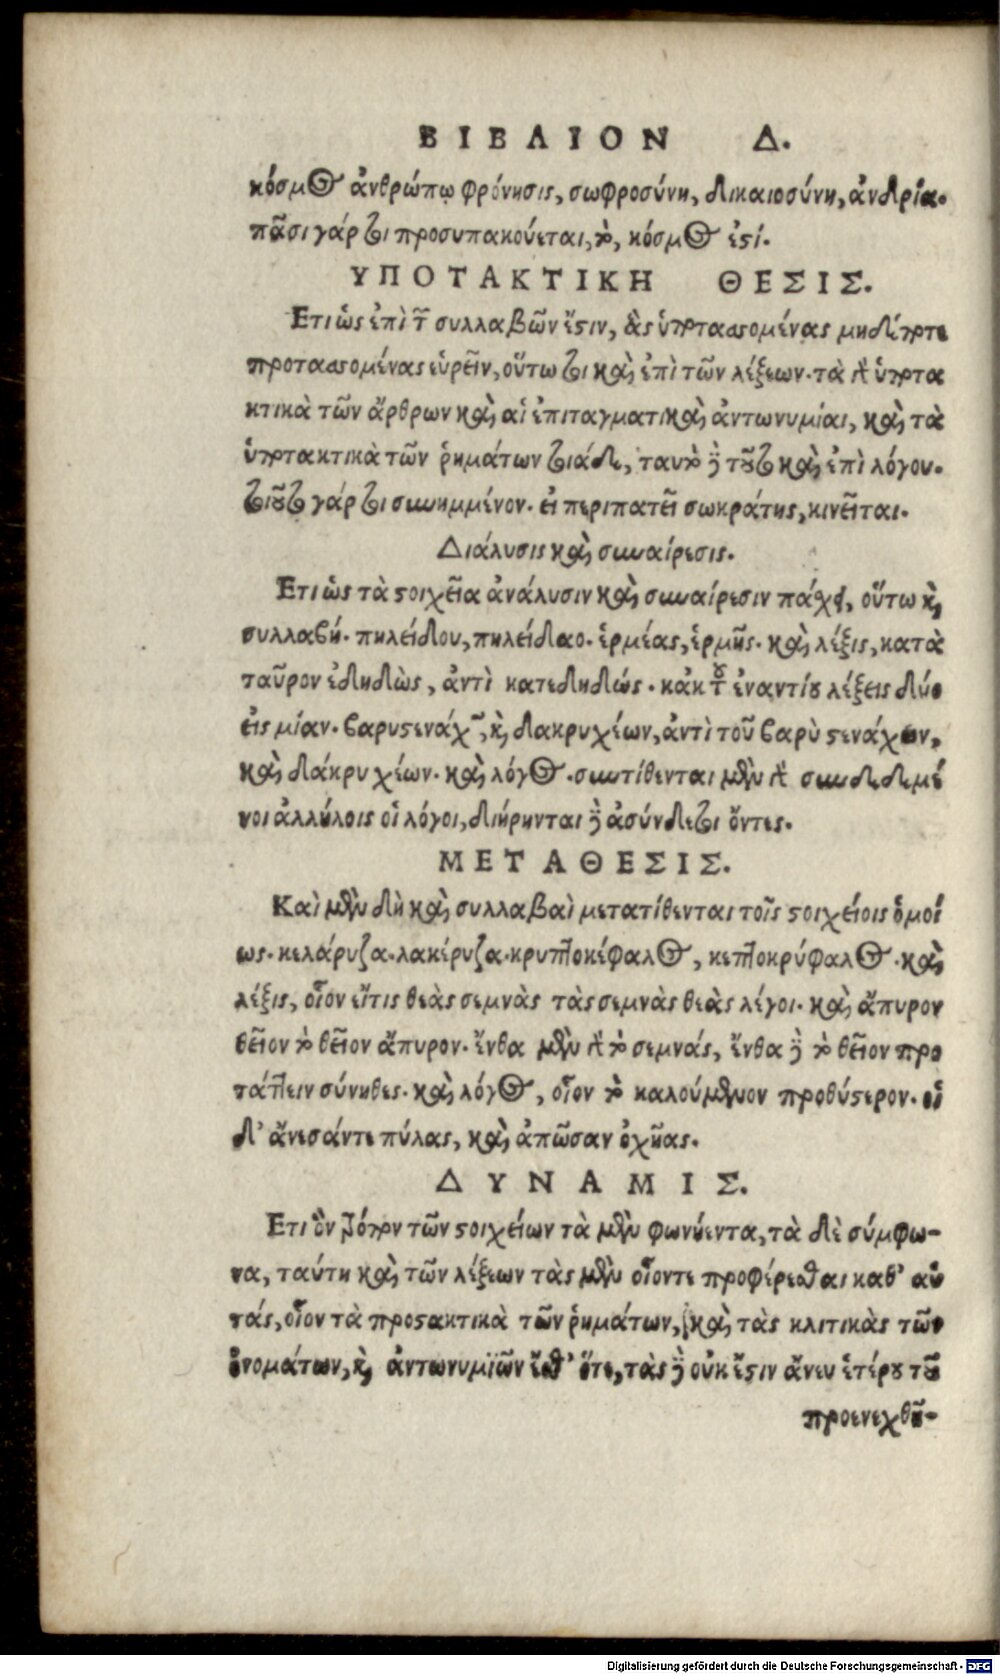 ΒΙΒΛΙΟΝ Δ.
κόσμος ἀνθρώπῳ φρόνησις, σωφροσύνη, δικαιοσύνη, ἀνδρία.
πᾶσι γάρ τοι προσυπακούεται, τὸ, κόσμος ἐστί.
ΥΠΟΤΑΚΤΙΚΗ ΘΕΣΙΣ.
Ετι ὡς ἐπὶ τ συλλαβῶν ἔστιν, ἃς ὑποτασσομένας μηδέποτε
προτασσομένας εὑρεῖν, οὕτω τοι καὶ ἐπὶ τῶν λέξεων. τὰ γὰρ ὑποτα
κτικὰ τῶν ἄρθρων καὶ αἱ ἐπιταγματικαὶ ἀντωνυμίαι, καὶ τὰ
ὑποτακτικὰ τῶν ῥημάτων τοιάδε, ταυτὸ δὲ τοῦτο καὶ ἐπὶ λόγου.
τοιοῦτο γάρ τοι συνημμένον. εἰ περιπατεῖ σωκράτης, κινεῖται.
Διάλυσις καὶ συναίρεσις.
Ετι ὡς τὰ στοιχεῖα ἀνάλυσιν καὶ συναίρεσιν πάχει, οὕτω καὶ
συλλαβή. πηλείδου, πηλείδαο. ἑρμέας, ἑρμῆς. καὶ λέξις, κατὰ
ταῦρον ἐδηδὼς, ἀντὶ κατεδηδώς. κἀκ τοῦ ἐναντίου λέξεις δύο
εἰς μίαν. βαρυστενάχων, καὶ δακρυχέων, ἀντὶ τοῦ βαρὺ στενάχων,
καὶ δάκρυ χέων. καὶ λόγος. συντίθενται μὲν γὰρ συνδεδεμέ
νοι ἀλλήλοις οἱ λόγοι, διῄρηνται δὲ ἀσύνδετοι ὄντες.
ΜΕΤΑΘΕΣΙΣ.
Καὶ μὲν δὴ καὶ συλλαβαὶ μετατίθενται τοῖς στοιχείοις ὁμοί
ως. κελάρυζα. λακέρυζα. κρυπτοκέφαλος, κεπτοκρύφαλος. καὶ
λέξις, οἷον εἴτις θεὰς σεμνὰς τὰς σεμνὰς θεὰς λέγοι. καὶ ἄπυρον
θεῖον τὸ θεῖον ἄπυρον. ἔνθα μὲν γὰρ τὸ σεμνάς, ἔνθα δὲ τὸ θεῖον προ
τάττειν σύνηθες. καὶ λόγος, οἷον τὸ καλούμενον προθύστερον. οἱ
δ' ἄνεσάντε πύλας, καὶ ἀπῶσαν ὀχῆας.
ΔΥΝΑΜΙΣ.
Ετι ὃν τρόπον τῶν στοιχείων τὰ μὲν φωνήεντα, τὰ δὲ σύμφω-
να, ταύτῃ καὶ τῶν λέξεων τὰς μὲν οἷοντε προφέρεσθαι καθ' αὑ
τάς, οἷον τὰ προστακτικὰ τῶν ῥημάτων, καὶ τὰς κλιτικὰς τῶν
ὀνομάτων, καὶ ἀντωνυμϊῶν ἔσθ' ὅτε, τὰς δὲ οὐκ ἔστιν ἄνευ ἑτέρου τοῦ
προενεχθῆ-
Digitalisierung gefördert durch die Deutsche Forschungsgemeinschaft - DFG